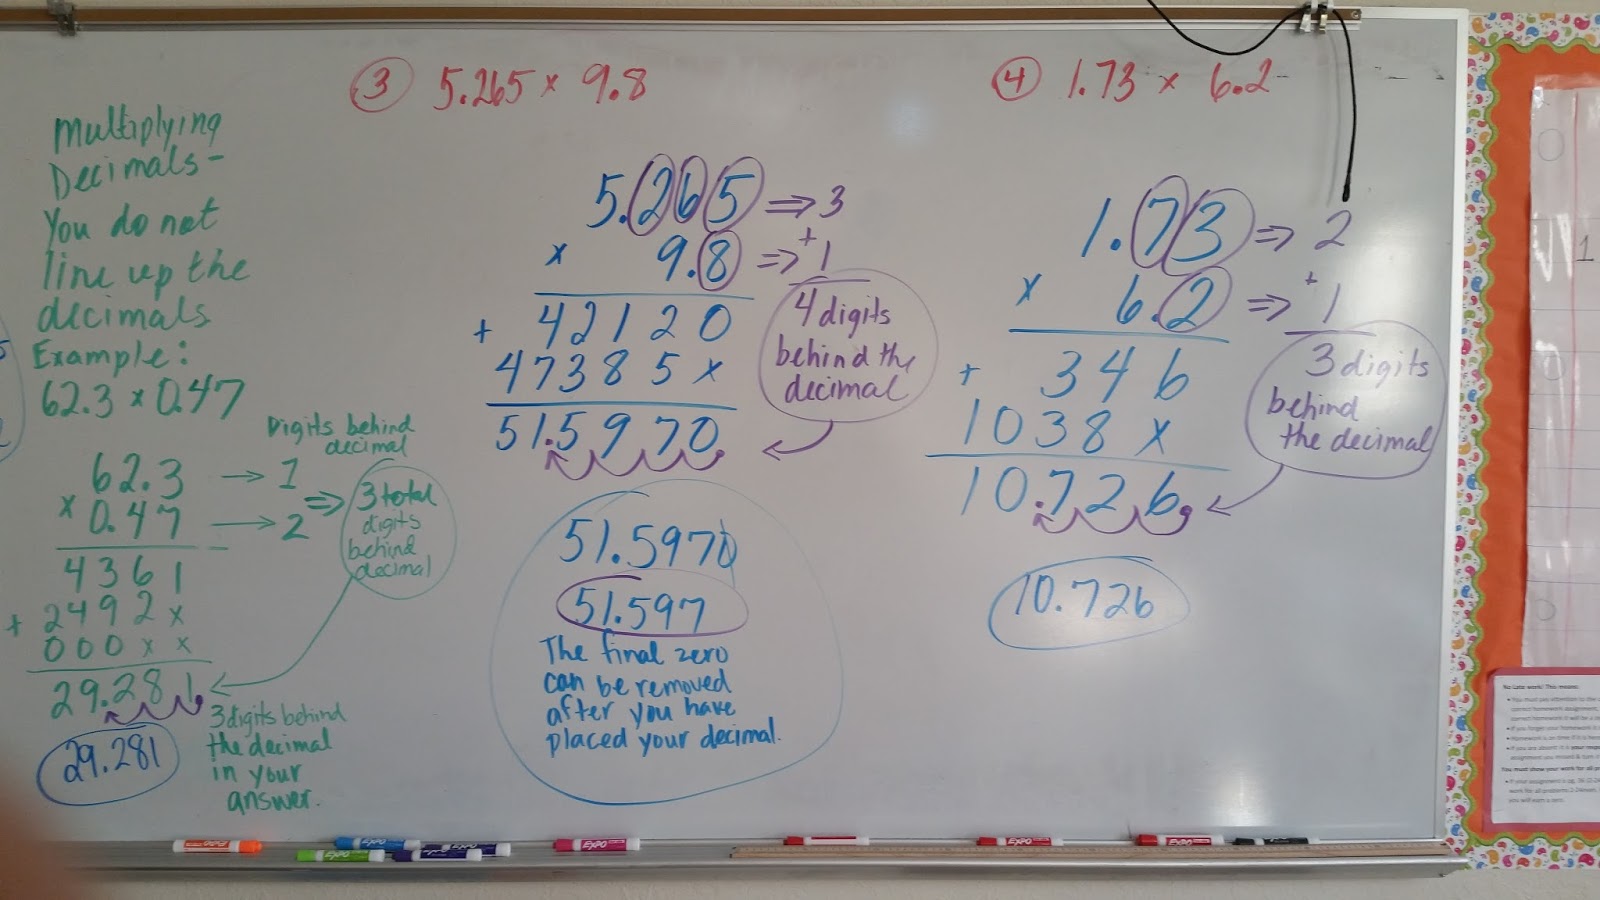 Multiplying
Decimals-
You do not
line up the
decimals
Example:
62.3 x 0.47
Digits behind
decimal
62.3 → 1
x 0.47 → 2
⇒ 3 total
digits
behind
decimal
4361
+ 2492x
000xx
29.281
3 digits behind
the decimal
in your
answer.
29.281
③ 5.265 x 9.8
5.265 ⇒ 3
x 9.8 ⇒ +1
4 digits
behind the
decimal
+ 42120
47385x
51.5970
51.5970
51.597
The final zero
can be removed
after you have
placed your decimal.
④ 1.73 x 6.2
1.73 ⇒ 2
x 6.2 ⇒ +1
3 digits
behind
the decimal
+ 346
1038x
10.726
10.726
1
No Late work! This means:
EXPO
EXPO
EXPO
EXPO